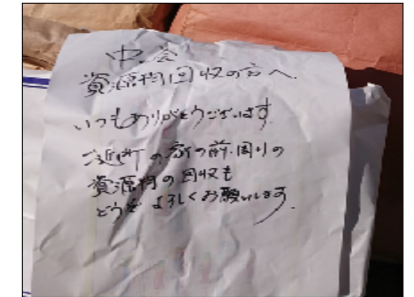 資源物回収の方へ.
いつもありがとうございます
ご近所の家の前.周りの
資源物の回収も
どうぞよろしくお願いします.